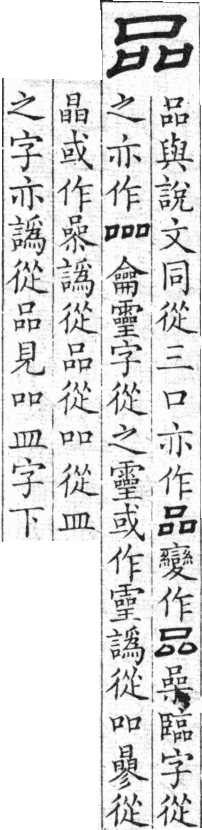 品
品與說文同從三口亦作品變作品喿臨字從
之亦作𠱠龠靈字從之靈或作譌從吅曑從
晶或作譌從品從吅從皿
之字亦譌從品見吅皿字下